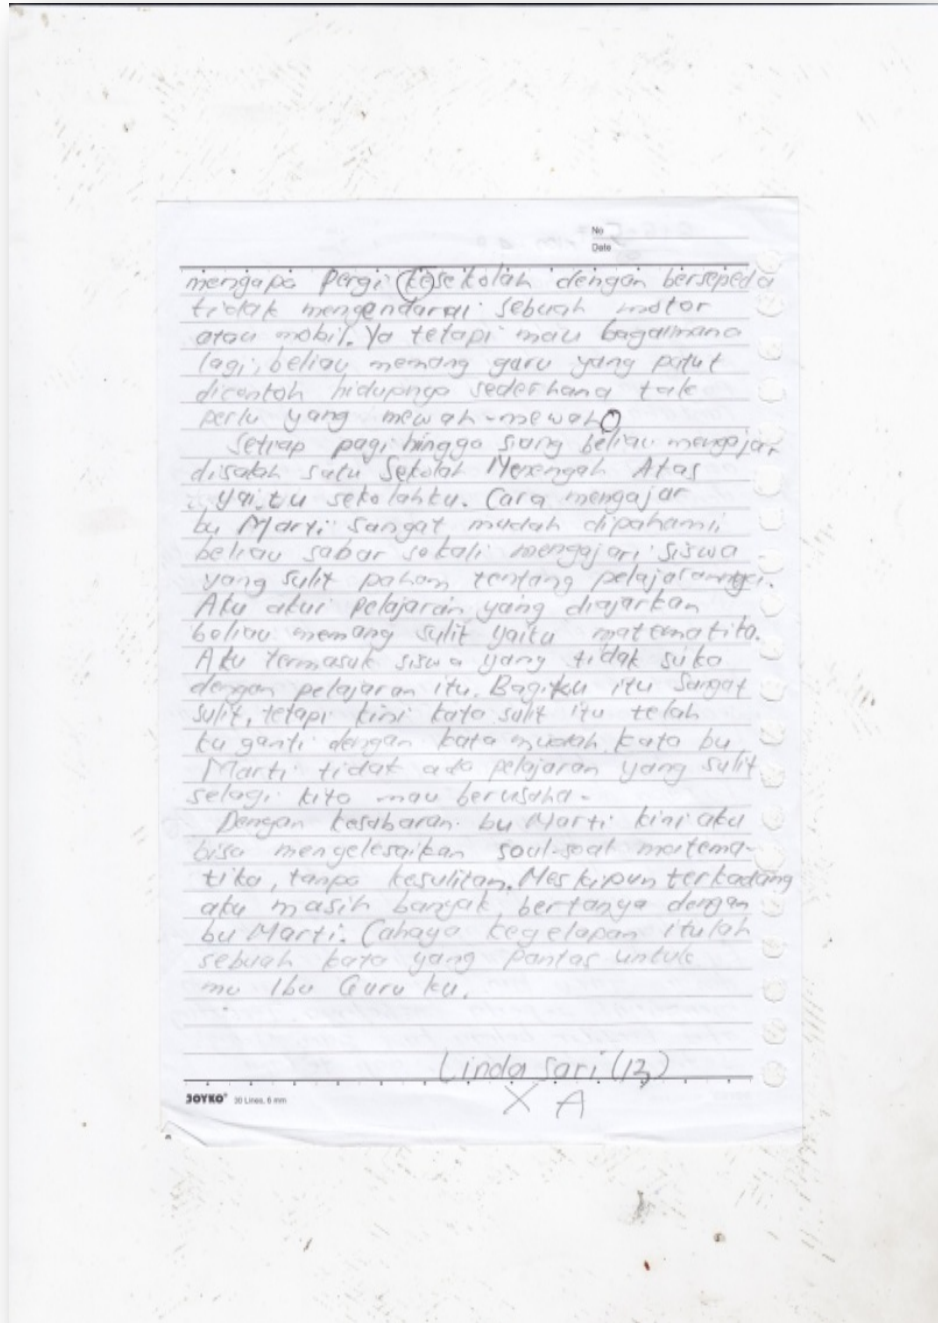 No
Date
mengapa pergi kesekolah dengan bersepeda
tidak mengendarai sebuah motor
atau mobil. Ya tetapi mau bagaimana
lagi, beliau memang guru yang patut
dicontoh hidupnya sederhana tak
perlu yang mewah-mewah
Setiap pagi hingga siang beliau mengajar
disalah satu Sekolah Menengah Atas
yaitu sekolahku. Cara mengajar
bu Marti sangat mudah dipahami
beliau sabar sekali mengajari siswa
yang sulit paham tentang pelajarannya.
Aku akui pelajaran yang diajarkan
beliau memang sulit yaitu matematika.
Aku termasuk siswa yang tidak suka
dengan pelajaran itu. Bagiku itu sangat
sulit, tetapi kini kata sulit itu telah
ku ganti dengan kata mudah. kata bu
Marti tidak ada pelajaran yang sulit
selagi kita mau berusaha.
Dengan kesabaran bu Marti kini aku
bisa mengelesaikan soal-soal matema-
tika, tanpa kesulitan. Meskipun terkadang
aku masih banyak bertanya dengan
bu Marti. Cahaya kegelapan itulah
sebuah kata yang pantas untuk
mu Ibu Guru ku.
Linda Sari (13)
X A
JOYKO 30 Lines, 6 mm